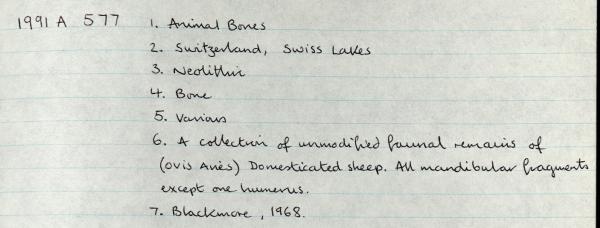 1991 A 577 1. Animal Bones
2. Switzerland, Swiss Lakes
3. Neolithic
4. Bone
5. Various
6. A collection of unmodified faunal remains of
(Ovis Aries) Domesticated sheep. All mandibular fragments
except one humerus.
7. Blackmore, 1968.